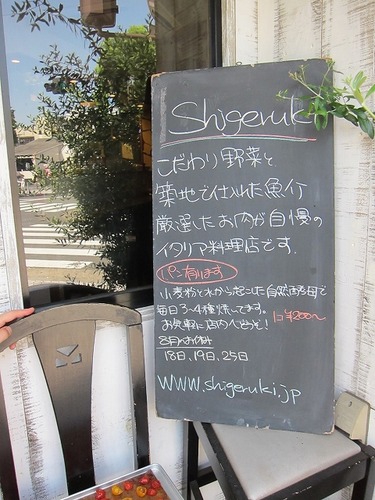 Shigeruki
こだわり野菜と
築地で仕入れた魚介
厳選したお肉が自慢の
イタリア料理店です.
パン有ります
小麦粉と水から起こした自然酵母で
毎日3〜4種焼いてます。
1コ¥200〜
お気軽に店内へどうぞ!
8月のお休み
13日、19日、25日
www.shigeruki.jp